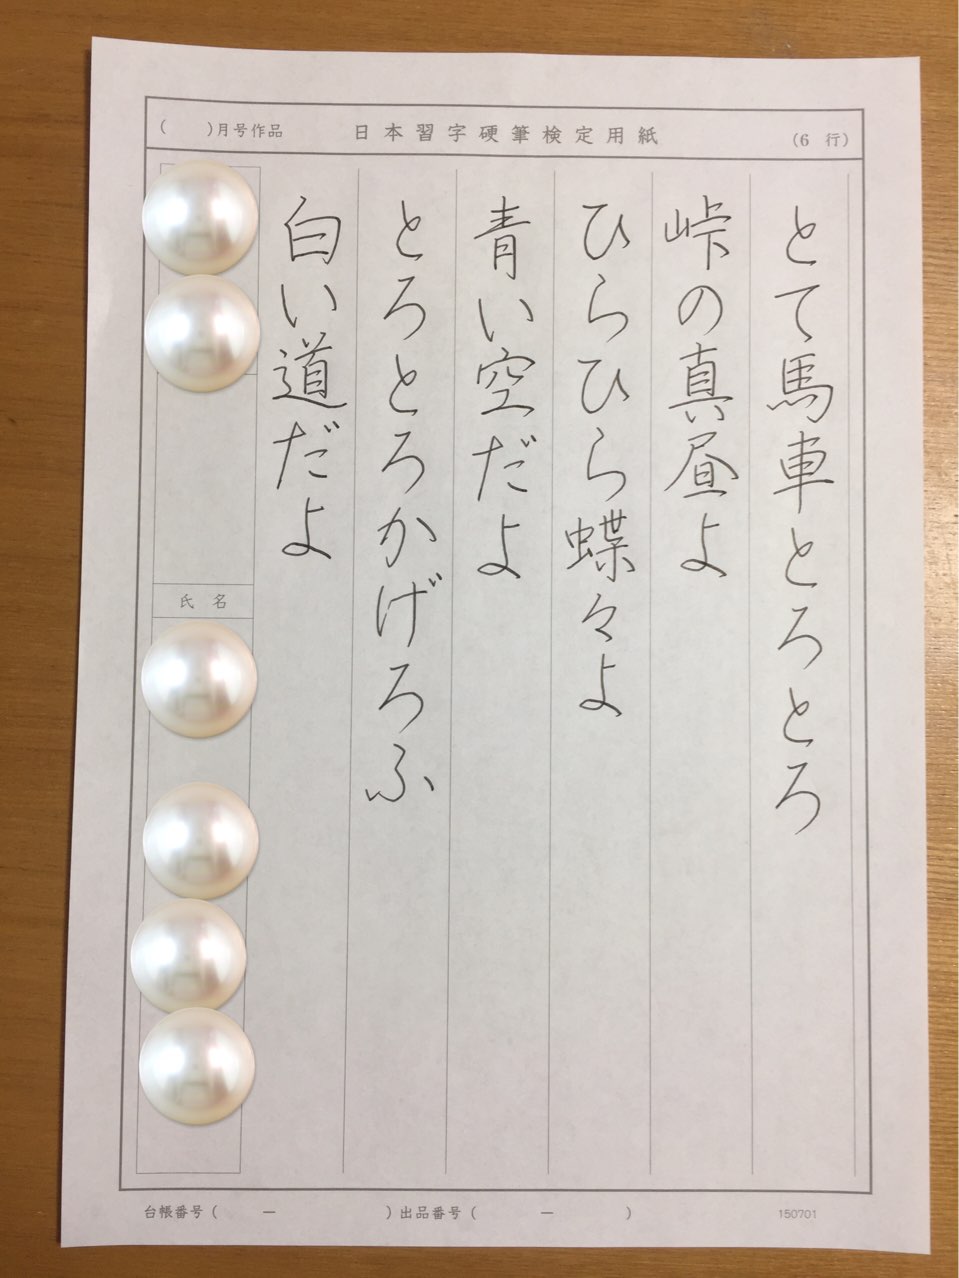 ( )月号作品 日本習字硬筆検定用紙 (6 行)
とて馬車とろとろ
峠の真昼よ
ひらひら蝶々よ
青い空だよ
とろとろかげろふ
白い道だよ
氏 名
台帳番号( ー )出品番号( ー )
150701